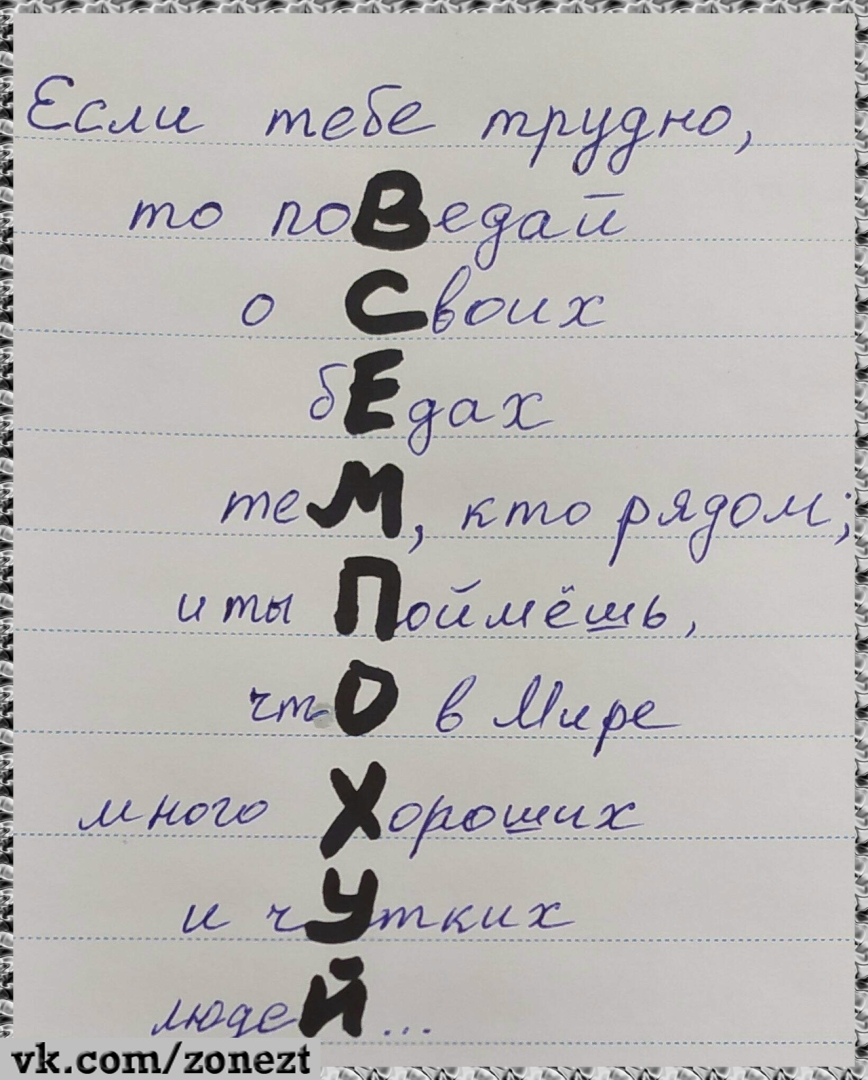 Если тебе трудно,
то поВедай
о Своих
бЕдах
теМ, кто рядом;
и ты Поймёшь,
чтО в Мире
много Хороших
и чУтких
людеЙ...
vk.com/zonezt